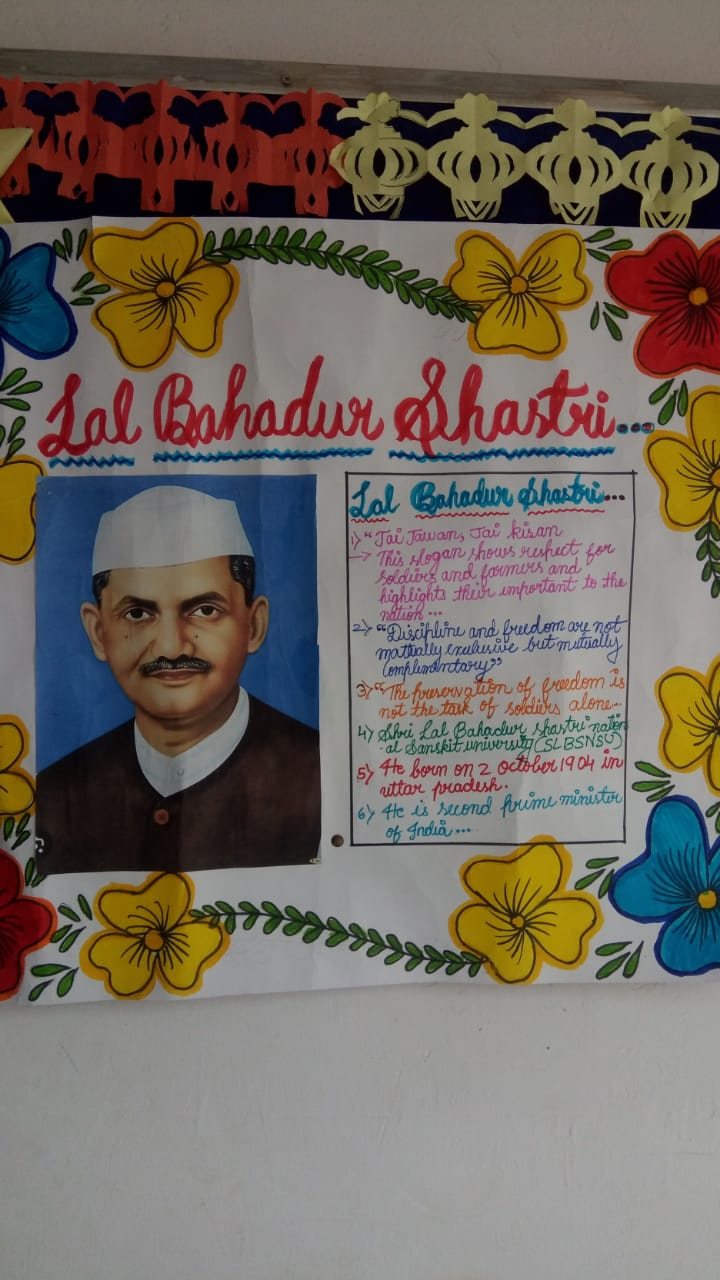 Lal Bahadur Shastri...
Lal Bahadur Shastri...
1) "Jai Jawan, Jai kisan
→ This slogan shows respect for
soldiers and farmers and
highlights their important to the
nation...
2) "Discipline and freedom are not
mutually exclusive but mutually
Complimentary"
3) "The preservation of freedom is
not the task of soldiers alone...
4) Shri Lal Bahadur shastri nation
-al Sanskit university (SLBSNSU)
5) He born on 2 october 1904 in
uttar pradesh.
6) He is second prime minister
of India...